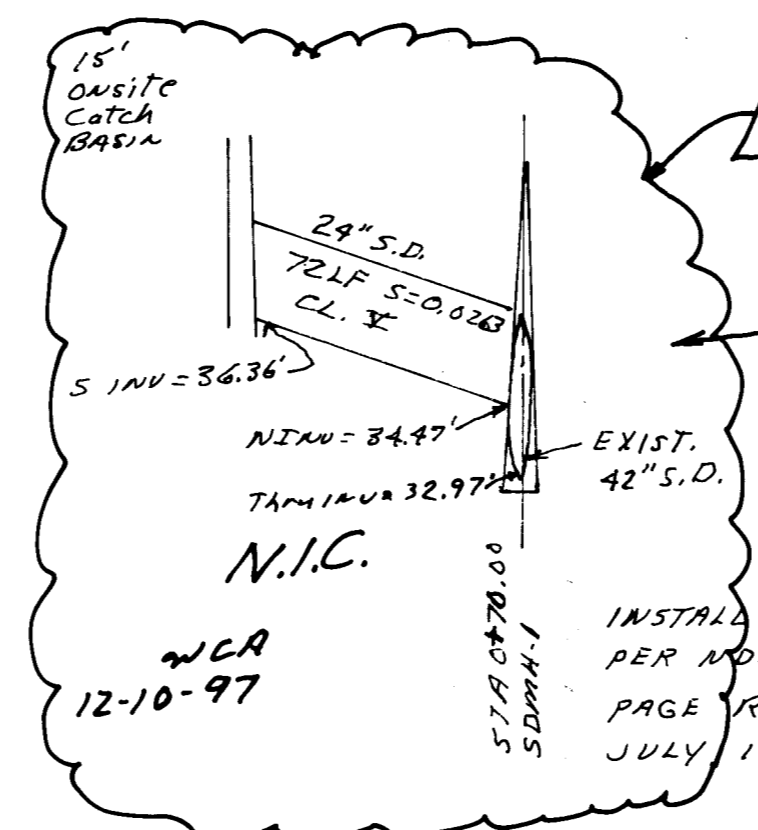 15'
ONSITE
CATCH
BASIN
24" S.D.
72 LF S=0.0263
CL. V
S INV = 36.36'
N INV = 34.47'
Thru INV = 32.97'
EXIST.
42" S.D.
N.I.C.
WCA
12-10-97
STA 0+70.00
SDMH-1
INSTALL
PER
PAGE
JULY 1